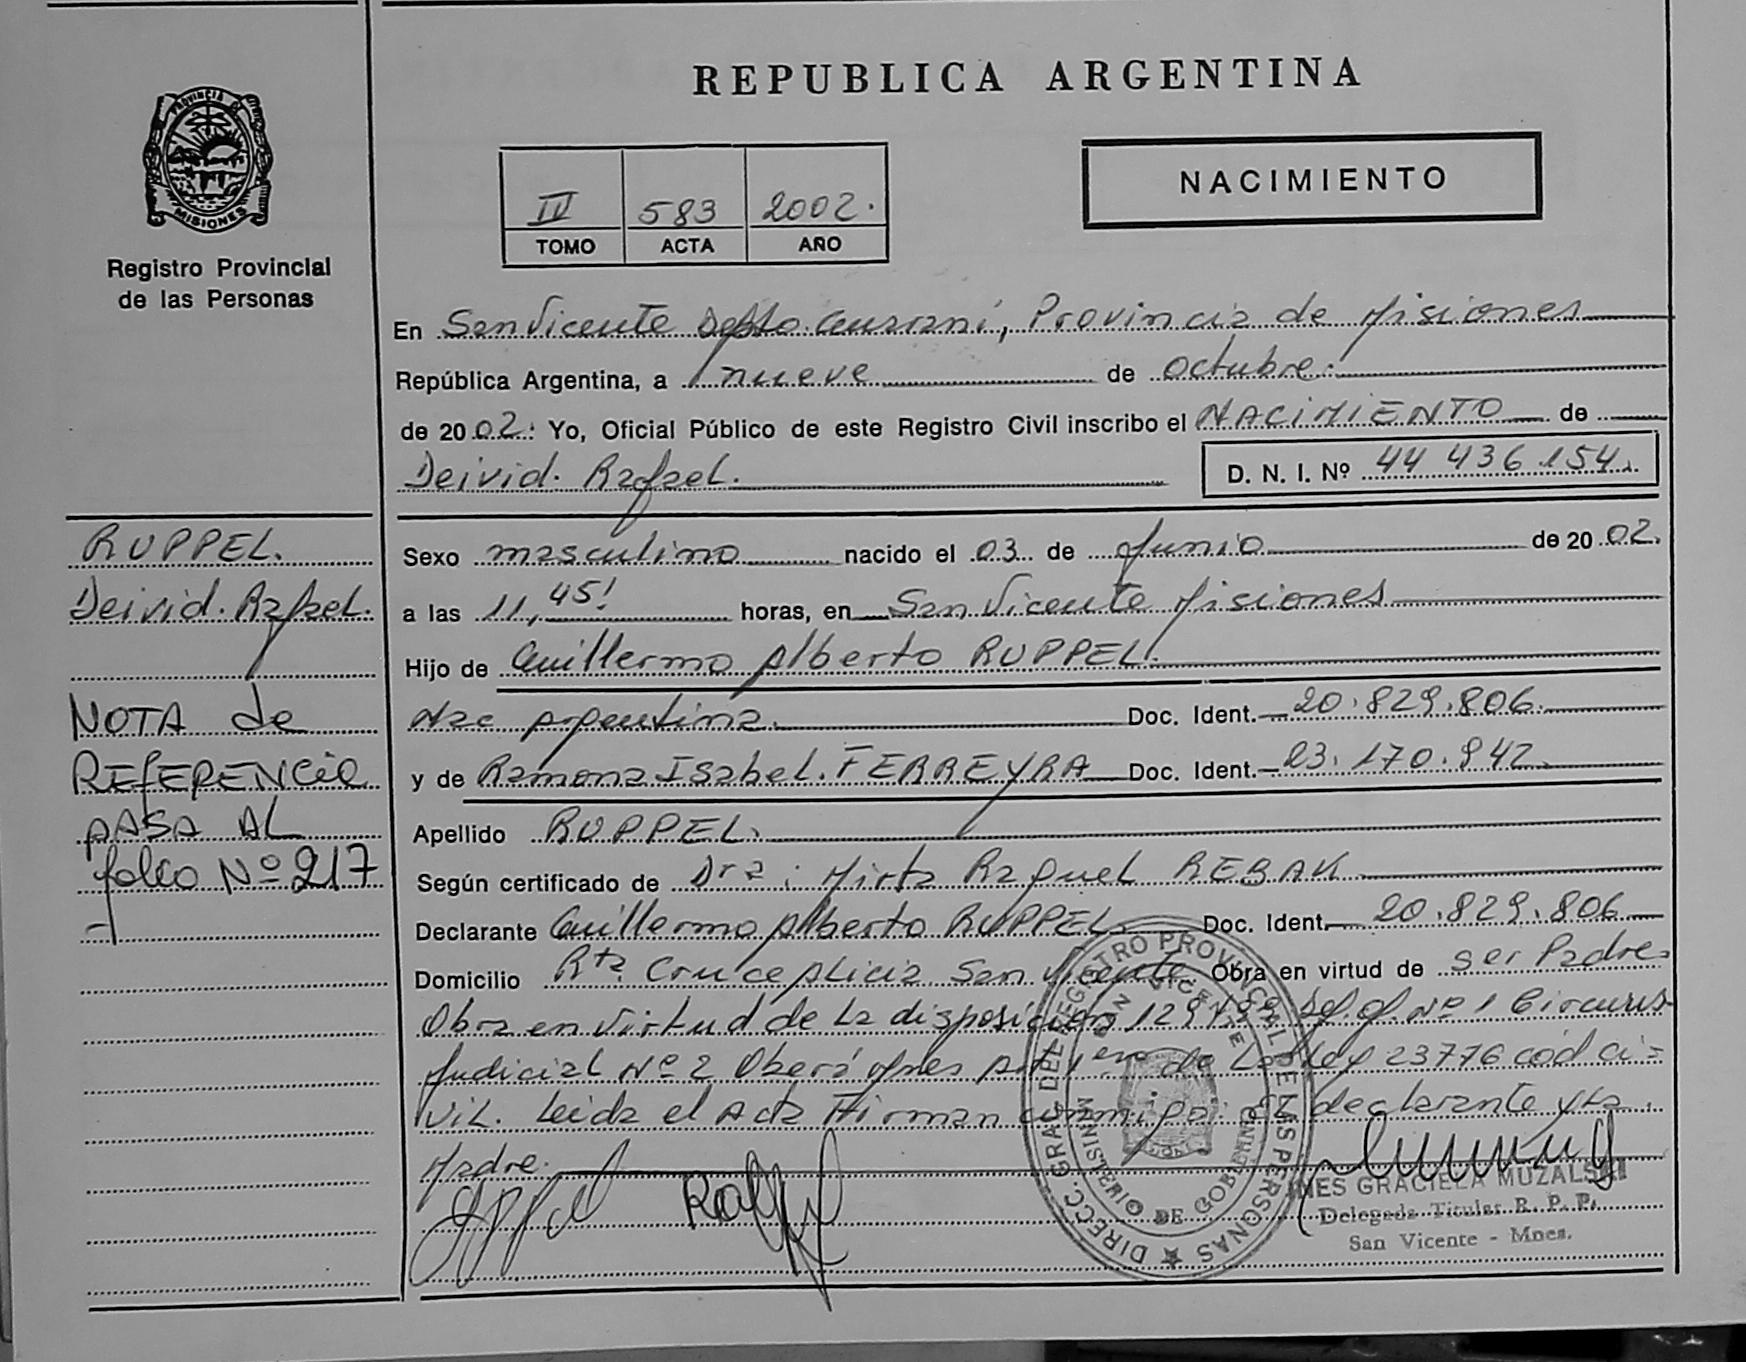 REPUBLICA ARGENTINA
NACIMIENTO
PROVINCIA DE
MISIONES
Registro Provincial
de las Personas
IV 583 2002.
TOMO ACTA AÑO
En San Vicente Depto. Guaraní, Provincia de Misiones
República Argentina, a nueve de octubre.
de 2002. Yo, Oficial Público de este Registro Civil inscribo el NACIMIENTO de
Deivid. Rafael. D. N. I. Nº 44 436.154.
RUPPEL.
Deivid. Rafael.
NOTA de
REFERENCIA
PASA AL
folio Nº 217
Sexo masculino nacido el 03 de Junio de 2002.
a las 11,45! horas, en San Vicente Misiones
Hijo de Guillermo Alberto RUPPEL.
Nac Argentina. Doc. Ident. 20.829.806.
y de Ramona Isabel. FERREYRA Doc. Ident. 23.170.942.
Apellido RUPPEL.
Según certificado de Dra: Mirta Raquel REBAK
Declarante Guillermo Alberto RUPPEL. Doc. Ident. 20.829.806
Domicilio Rta Cruce Alicia San Vicente Obra en virtud de ser Padre
Obra en virtud de la disposición Nº 1 Circuns
Judicial Nº 2 Oberá de La Ley 23776 cód ci=
vil. Leida el Acta Firman el declarante y la
Madre.
DIRECC. GRAL. DEL REGISTRO PROVINCIAL DE LAS PERSONAS
SAN VICENTE
MINISTERIO DE GOBIERNO
INES GRACIELA MUZALSKI
Delegada Titular R. P. P.
San Vicente - Mnes.